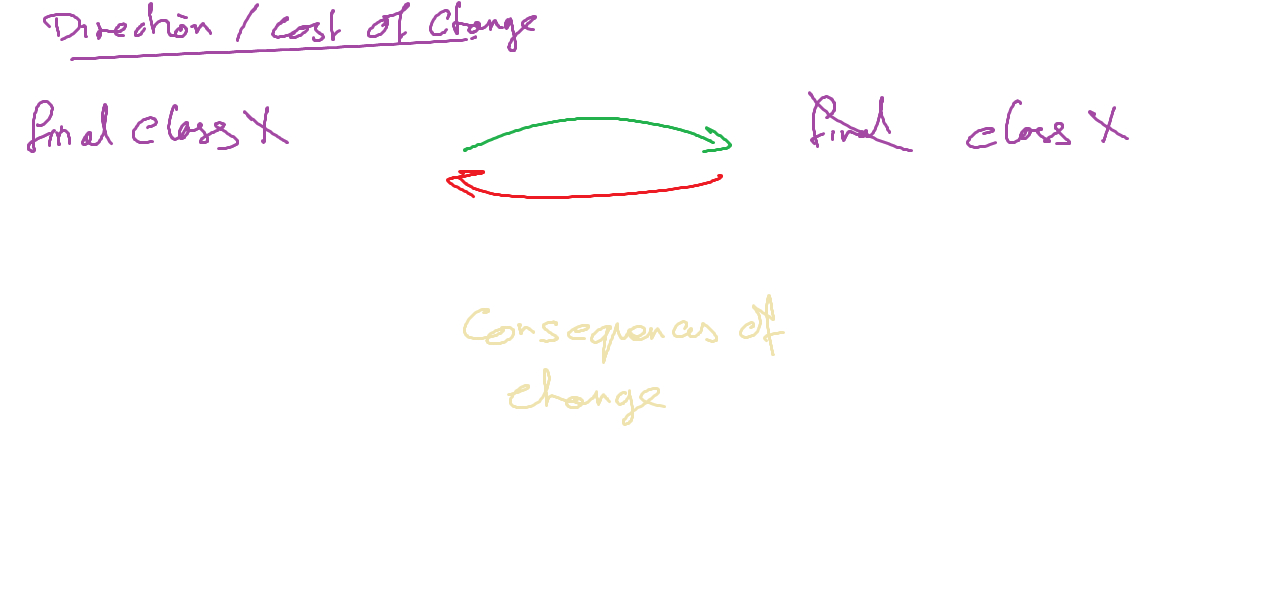 Direction / Cost of Change
final class X
final class X
Consequences of
change